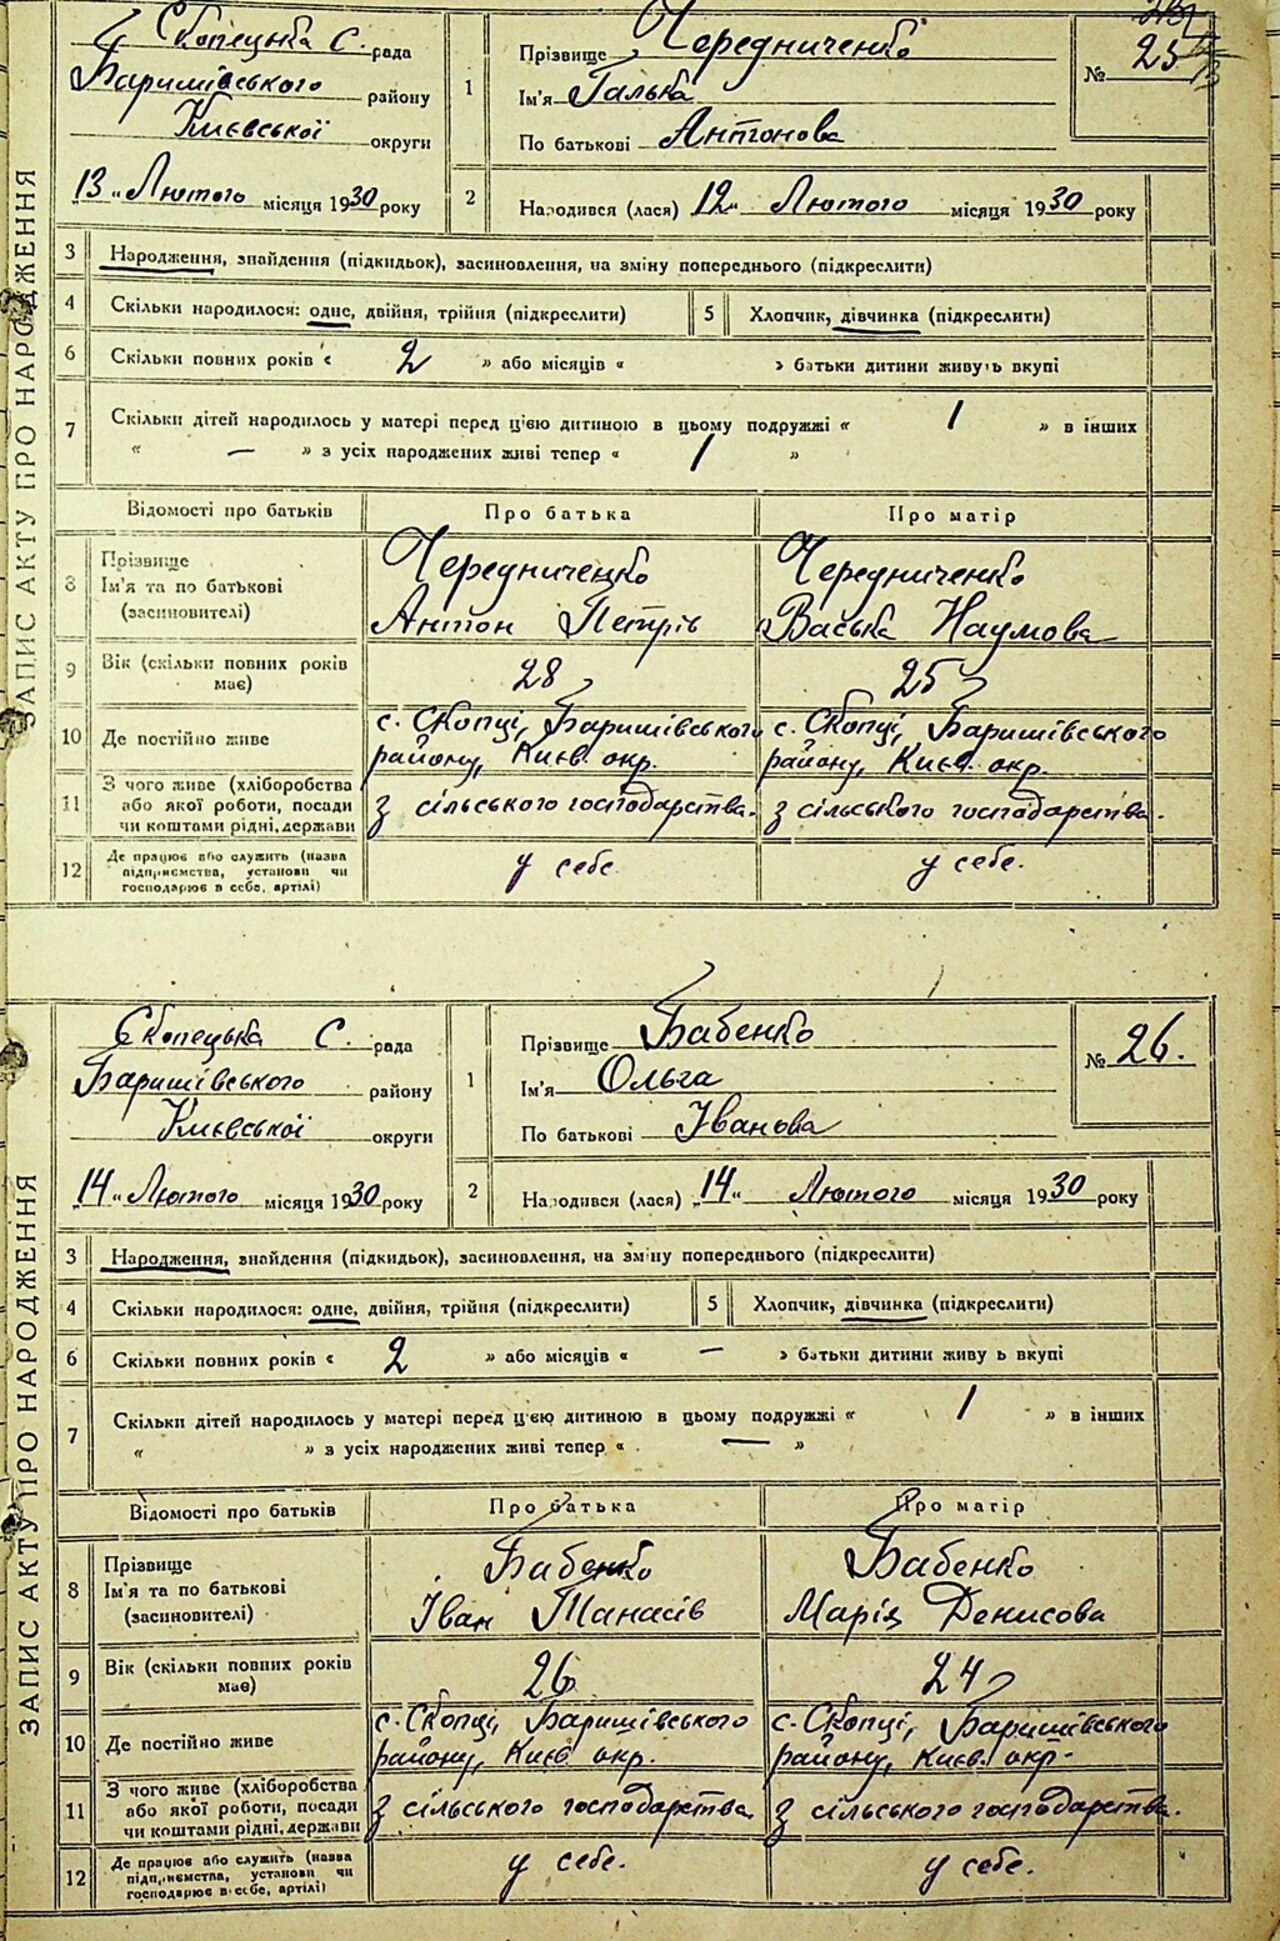 ЗАПИС АКТУ ПРО НАРОДЖЕННЯ
Скопецька С. рада
Баришівського району
Києвської округи
13 " Лютого місяця 1930 року
1 Прізвище Чередниченко
Ім'я Галька
По батькові Антонова
№ 25
2 Народився (лася) 12 " Лютого місяця 1930 року
3 Народження, знайдення (підкидьок), засиновлення, на зміну попереднього (підкреслити)
4 Скільки народилося: одне, двійня, трійня (підкреслити) 5 Хлопчик, дівчинка (підкреслити)
6 Скільки повних років « 2 » або місяців « » батьки дитини живуть вкупі
7 Скільки дітей народилось у матері перед цією дитиною в цьому подружжі « 1 » в інших
« — » з усіх народжених живі тепер « 1 »
Відомості про батьків Про батька Про матір
8 Прізвище Ім'я та по батькові (засиновителі) Чередниченко Антон Петрів Чередниченко Васька Наумова
9 Вік (скільки повних років має) 28 25
10 Де постійно живе с. Скопці, Баришівського району, Києв. окр. с. Скопці, Баришівського району, Києв. окр.
11 З чого живе (хліборобства або якої роботи, посади чи коштами рідні, держави з сільського господарства. з сільського господарства.
12 Де працює або служить (назва підприємства, установи чи господарює в себе, артілі) у себе у себе.
ЗАПИС АКТУ ПРО НАРОДЖЕННЯ
Скопецька С. рада
Баришівського району
Києвської округи
14 " Лютого місяця 1930 року
1 Прізвище Бабенко
Ім'я Ольга
По батькові Іванова
№ 26.
2 Народився (лася) „14 " Лютого місяця 1930 року
3 Народження, знайдення (підкидьок), засиновлення, на зміну попереднього (підкреслити)
4 Скільки народилося: одне, двійня, трійня (підкреслити) 5 Хлопчик, дівчинка (підкреслити)
6 Скільки повних років « 2 » або місяців « — » батьки дитини живу ь вкупі
7 Скільки дітей народилось у матері перед цією дитиною в цьому подружжі « 1 » в інших
« » з усіх народжених живі тепер « — »
Відомості про батьків Про батька Про матір
8 Прізвище Ім'я та по батькові (засиновителі) Бабенко Іван Танасів Бабенко Марія Денисова
9 Вік (скільки повних років має) 26 24
10 Де постійно живе с. Скопці, Баришівського району, Києв. окр. с. Скопці, Баришівського району, Києв. окр.
11 З чого живе (хліборобства або якої роботи, посади чи коштами рідні, держави з сільського господарства. з сільського господарства.
12 Де працює або служить (назва підприємства, установи чи господарює в себе, артілі) у себе. у себе.